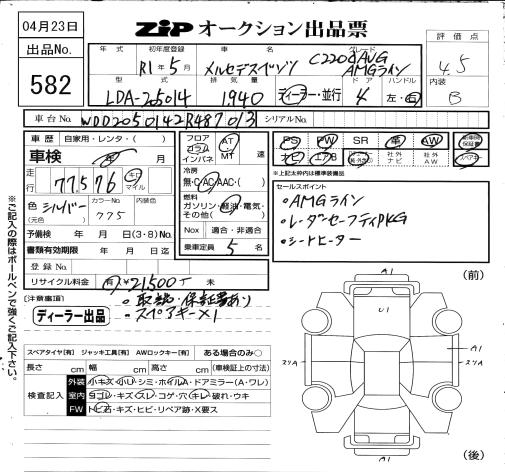 04月23日
ZIP オークション出品票
出品No. 582
評価点 4.5
内装 B
年式 初年度登録 車名 グレード
R1年5月 メルセデスベンツ C220d AVG
AMGライン
型式 排気量 ドア ハンドル
LDA-205014 1940 ディーラー・並行 4 左・右
車台No. WDD2050142R487013 シリアルNo.
車歴 自家用・レンタ・( )
車検 年 月
走行 77,576 キロ マイル
色 シルバー (元色) カラーNo. 775 内装色
予備検 年 月 日(3・8)No.
書類有効期限 年 月 日迄
登録No.
リサイクル料金 有 ¥21,500 未
フロア コラム インパネ AT MT 速
冷房 無・C・AC・AAC・( )
燃料 ガソリン・軽油・電気・その他( )
Nox 適合・非適合
乗車定員 5 名
PS PW SR 革 AW
ナビ エアB 社外ナビ 社外AW スペアキー
※上記太枠内は標準装備品
セールスポイント
・AMGライン
・レーダーセーフティPKG
・シートヒーター
注意事項
・取説・保証書あり
・スペアキー×1
ディーラー出品
スペアタイヤ[有] ジャッキ工具[有] AWロックキー[有] ある場合のみ○
長さ cm 幅 cm 高さ cm (車検証上の寸法)
検査記入
外装 小キズ・小凹・シミ・ホイルA・ドアミラー(A・ワレ)
室内 ヨゴレ・キズ・スレ・コゲ・穴・キレ・破れ・ウキ
FW トビ石・キズ・ヒビ・リペア跡・X要ス
※ご記入の際はボールペンで強くご記入下さい。
(前)
A1
U1
A1
(後)